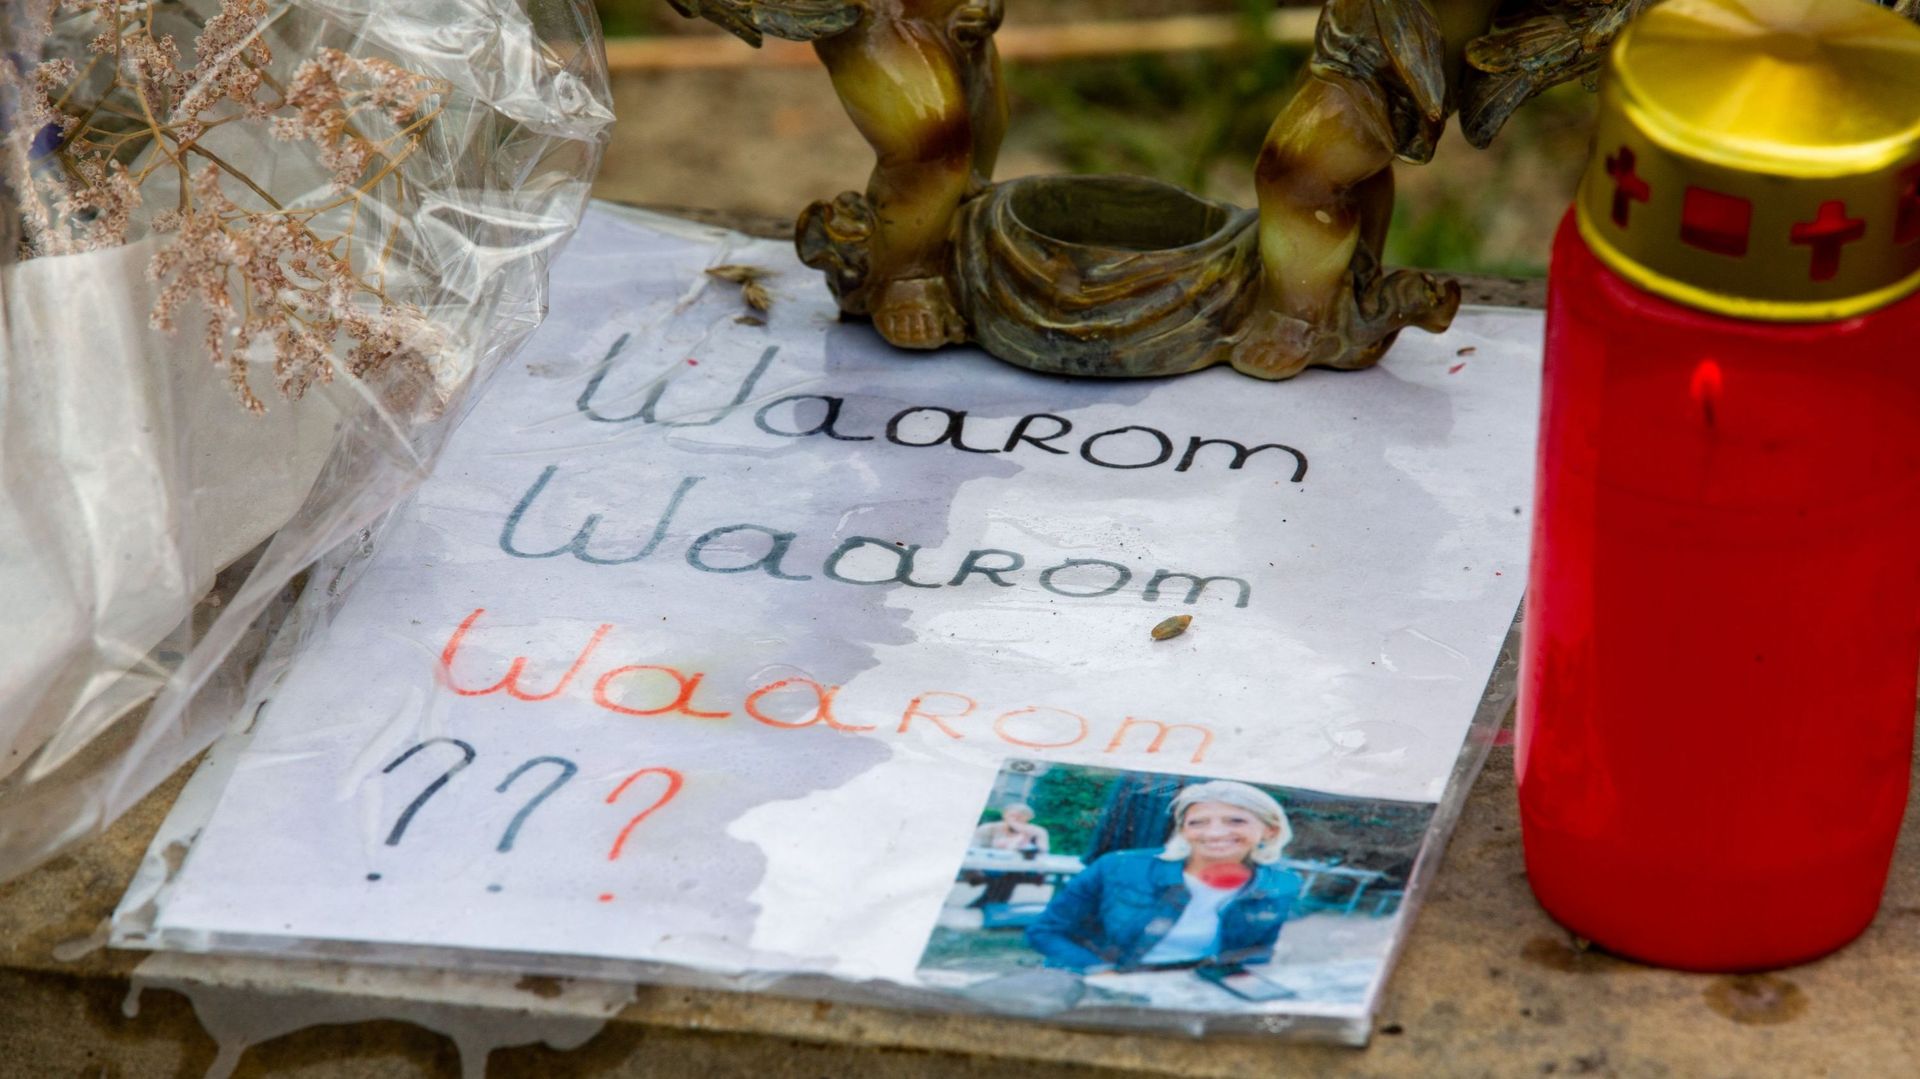 Waarom
Waarom
Waarom
? ? ?